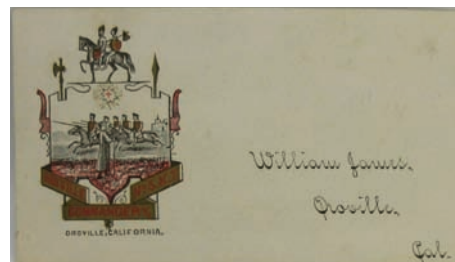 COMMANDERY
OROVILLE, CALIFORNIA.
William James,
Oroville,
Cal.